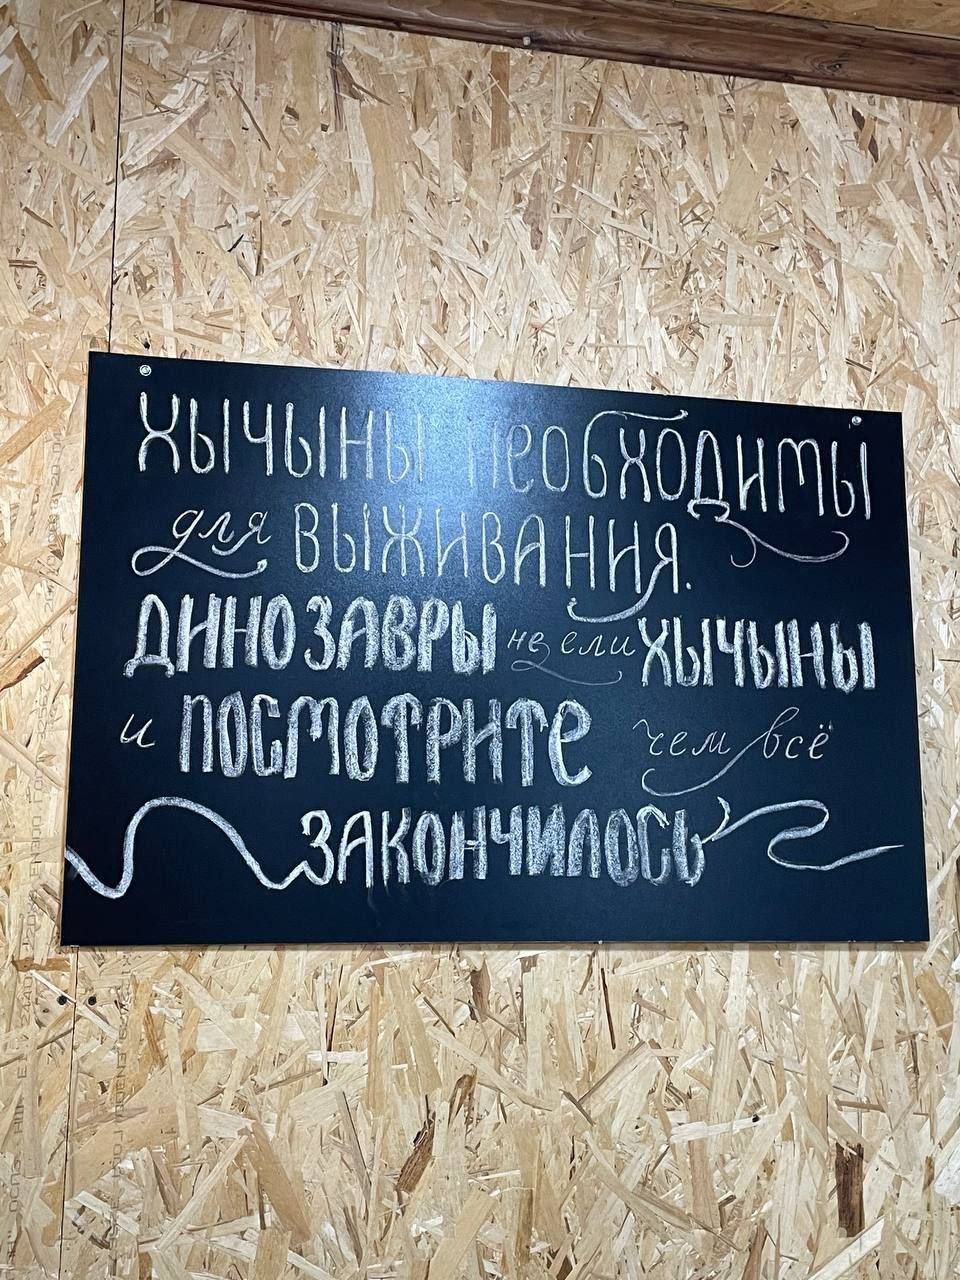 ХЫЧЫНЫ НЕОБХОДИМЫ
для ВЫЖИВАНИЯ.
ДИНОЗАВРЫ не ели ХЫЧЫНЫ
и ПОСМОТРИТЕ чем всё
ЗАКОНЧИЛОСЬ